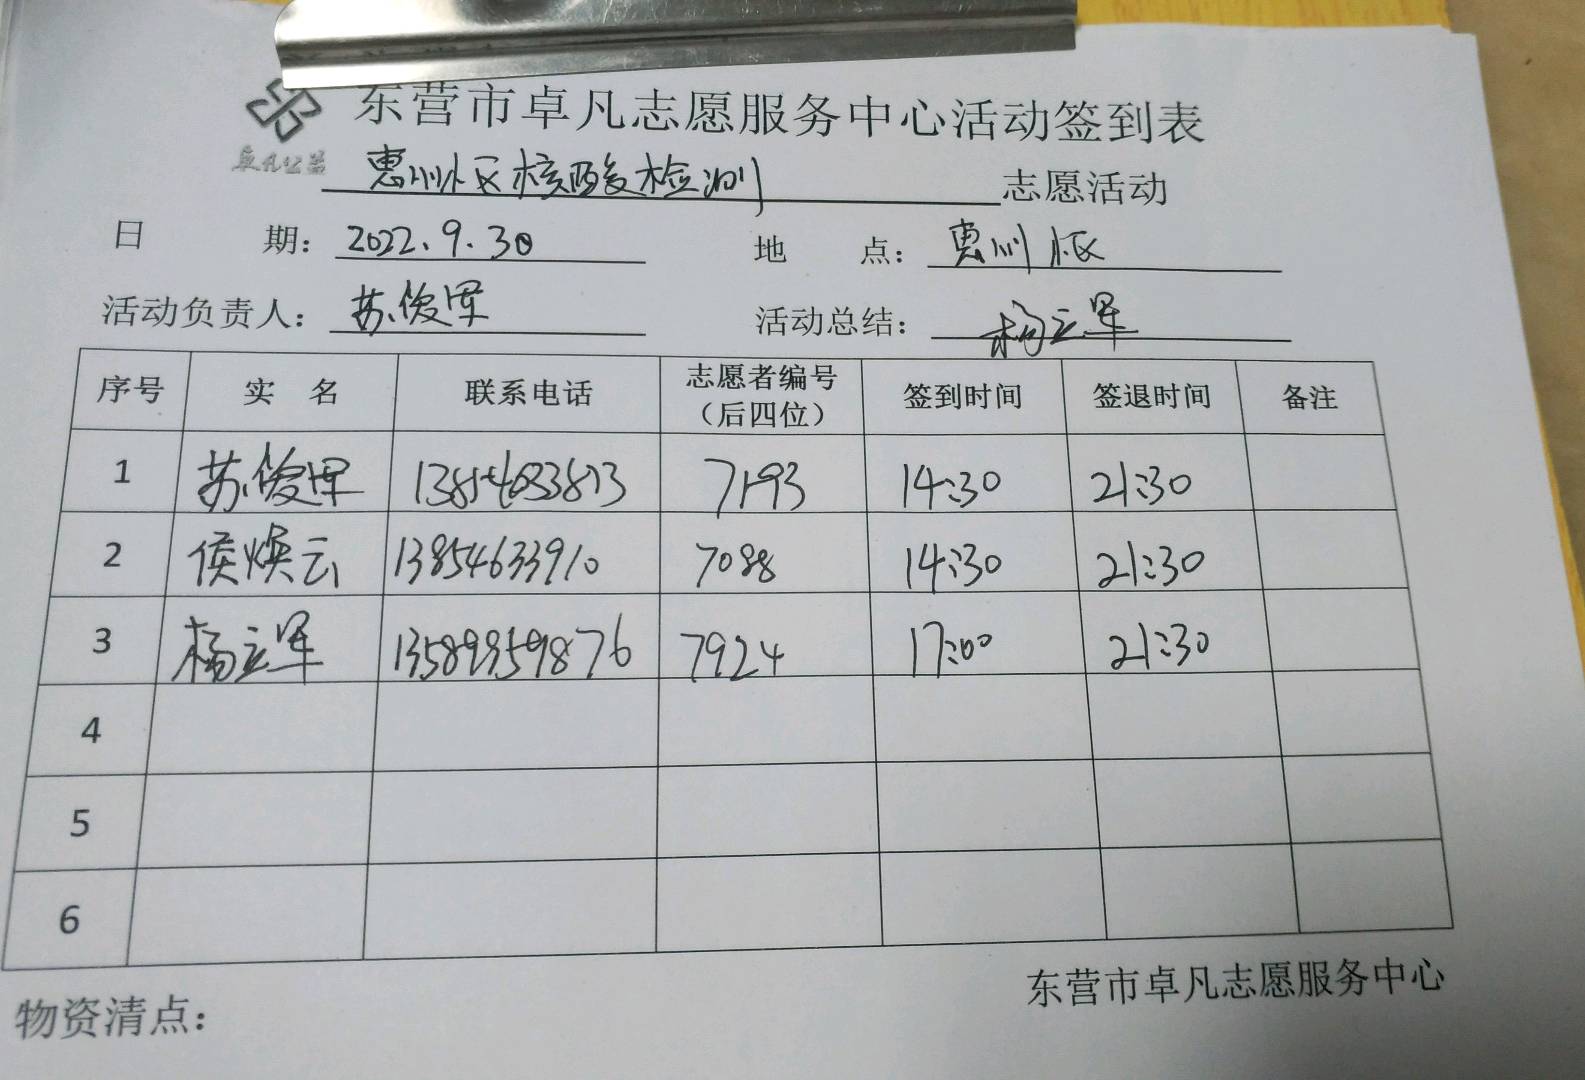 东营市卓凡志愿服务中心活动签到表
卓凡公益
惠州小区核酸检测 志愿活动
日 期：2022.9.30 地 点：惠州小区
活动负责人：苏俊军 活动总结：杨立军
序号 实 名 联系电话 志愿者编号（后四位） 签到时间 签退时间 备注
1 苏俊军 13854683813 7193 14:30 21:30
2 侯焕云 13854633910 7088 14:30 21:30
3 杨立军 13589959876 7924 17:00 21:30
4
5
6
物资清点： 东营市卓凡志愿服务中心